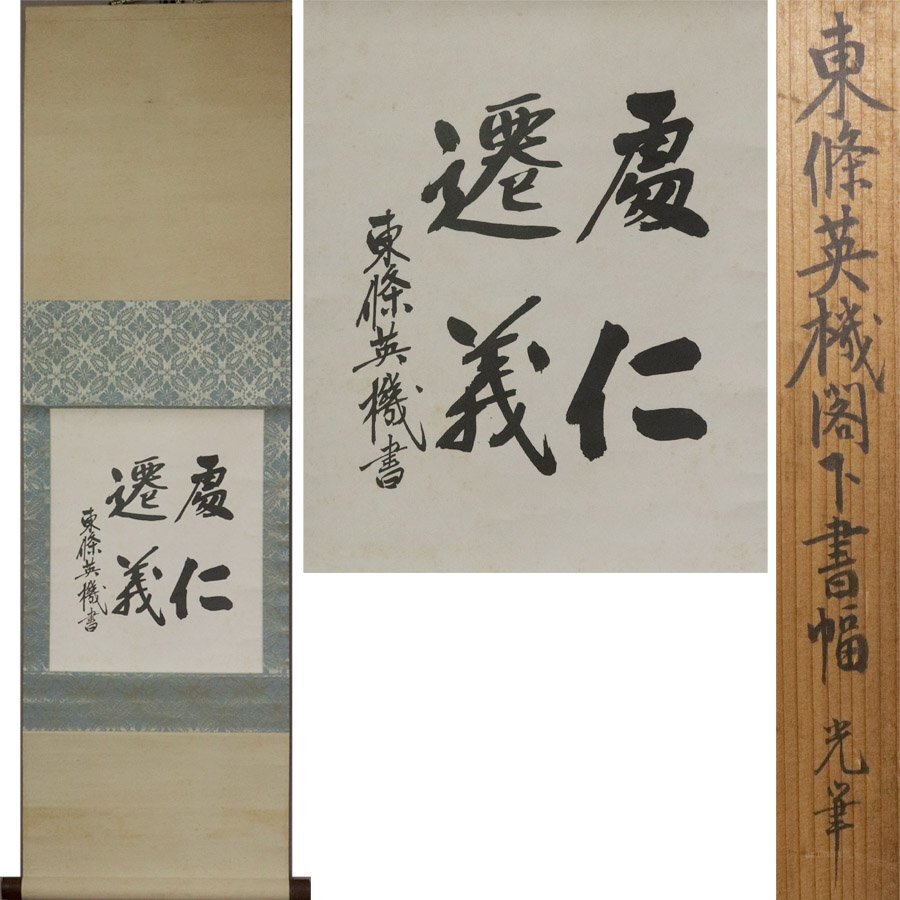 處仁
遷義
東條英機書
處仁
遷義
東條英機書
東條英機閣下書幅 光筆